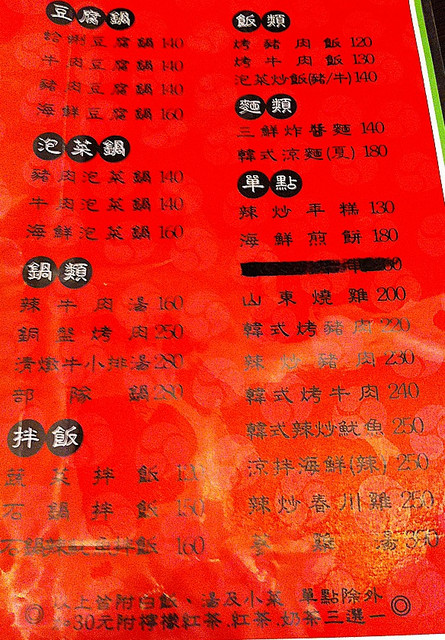 豆腐鍋
蛤蜊豆腐鍋 140
牛肉豆腐鍋 140
豬肉豆腐鍋 140
海鮮豆腐鍋 160
泡菜鍋
豬肉泡菜鍋 140
牛肉泡菜鍋 140
海鮮泡菜鍋 160
鍋類
辣牛肉湯 160
銅盤烤肉 250
清燉牛小排湯 280
部隊鍋 280
拌飯
蔬菜拌飯 120
石鍋拌飯 150
石鍋辣魷魚拌飯 160
飯類
烤豬肉飯 120
烤牛肉飯 130
泡菜炒飯(豬/牛) 140
麵類
三鮮炸醬麵 140
韓式涼麵(夏) 180
單點
辣炒年糕 130
海鮮煎餅 180
山東燒雞 200
韓式烤豬肉 220
辣炒豬肉 230
韓式烤牛肉 240
韓式辣炒魷魚 250
涼拌海鮮(辣) 250
辣炒春川雞 250
蔘雞湯 350
◎ 以上皆附白飯、湯及小菜 單點除外 ◎
加30元附檸檬紅茶.紅茶.奶茶三選一